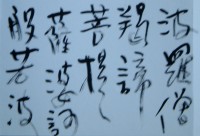 波羅僧
羯諦
菩提
薩婆訶
般若波